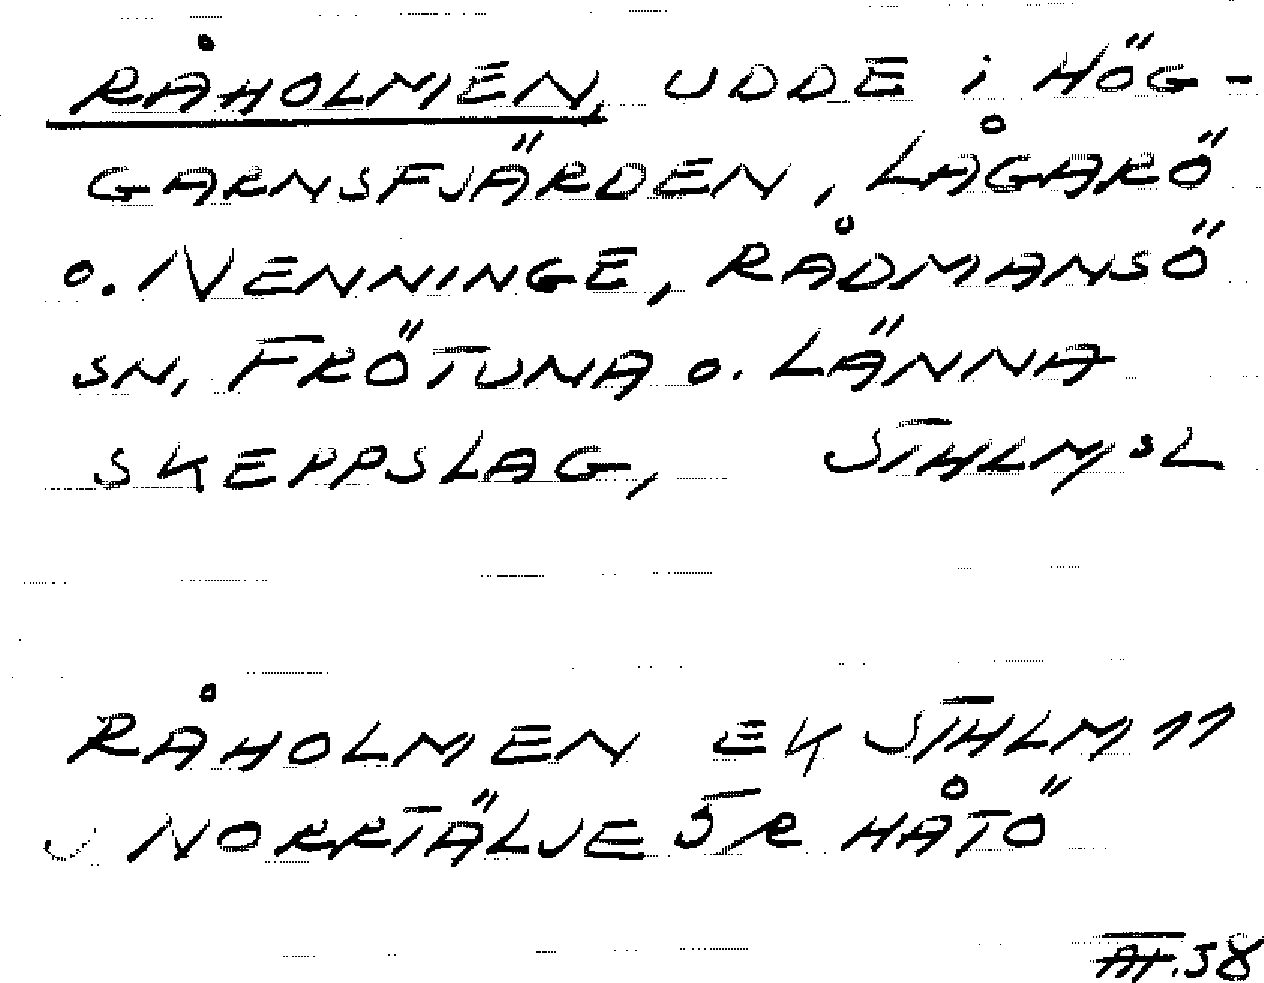 RÅHOLMEN, UDDE i HÖG-
GARNSFJÄRDEN, LÅGARÖ
o. NENNINGE, RÅDMANSÖ
SN, FRÖTUNA o. LÄNNA
SKEPPSLAG, STHLMSL
RÅHOLMEN EK STHLM 11
J NORRTÄLJE 5R HÅTÖ
58